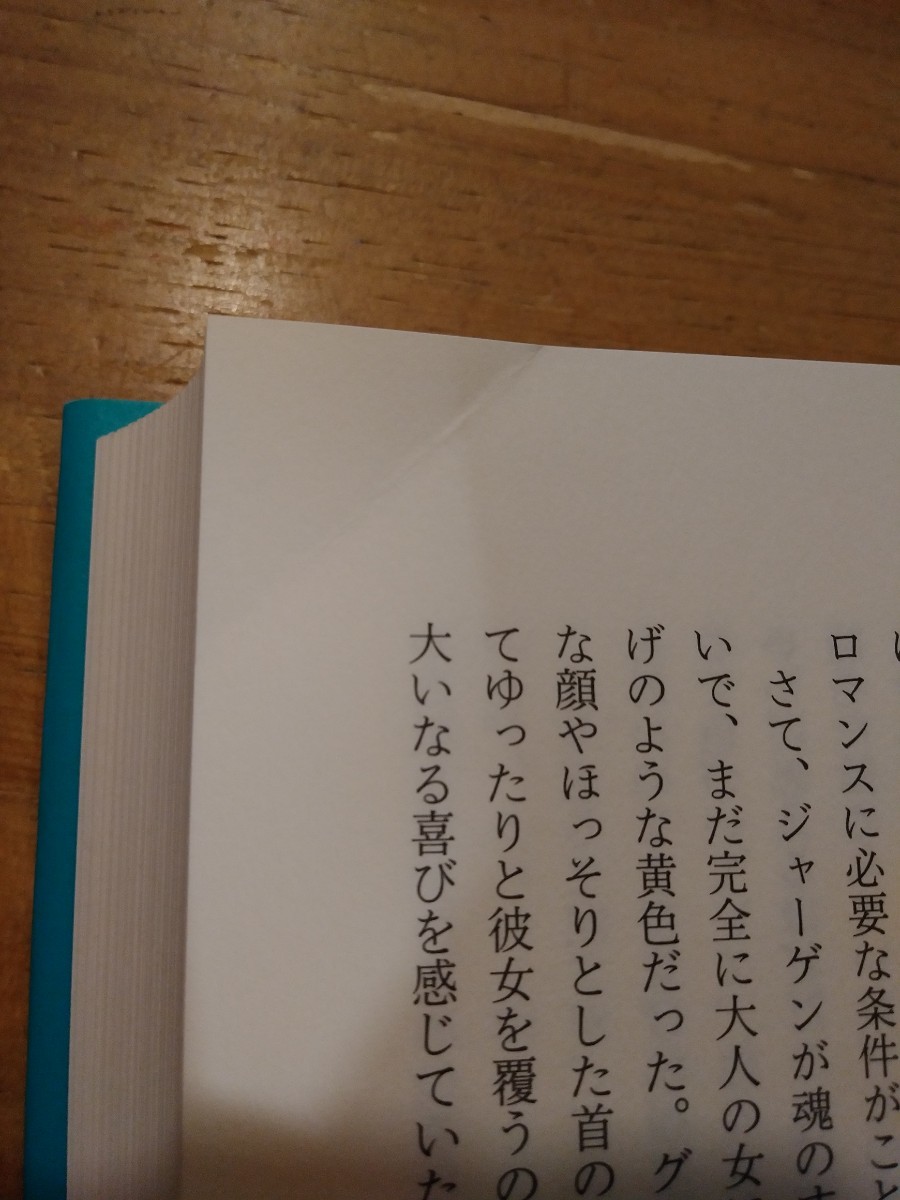 ロマンスに必要な条件がこと
さて、ジャーゲンが魂の
いで、まだ完全に大人の女
げのような黄色だった。グ
な顔やほっそりとした首の
てゆったりと彼女を覆うの
大いなる喜びを感じていた